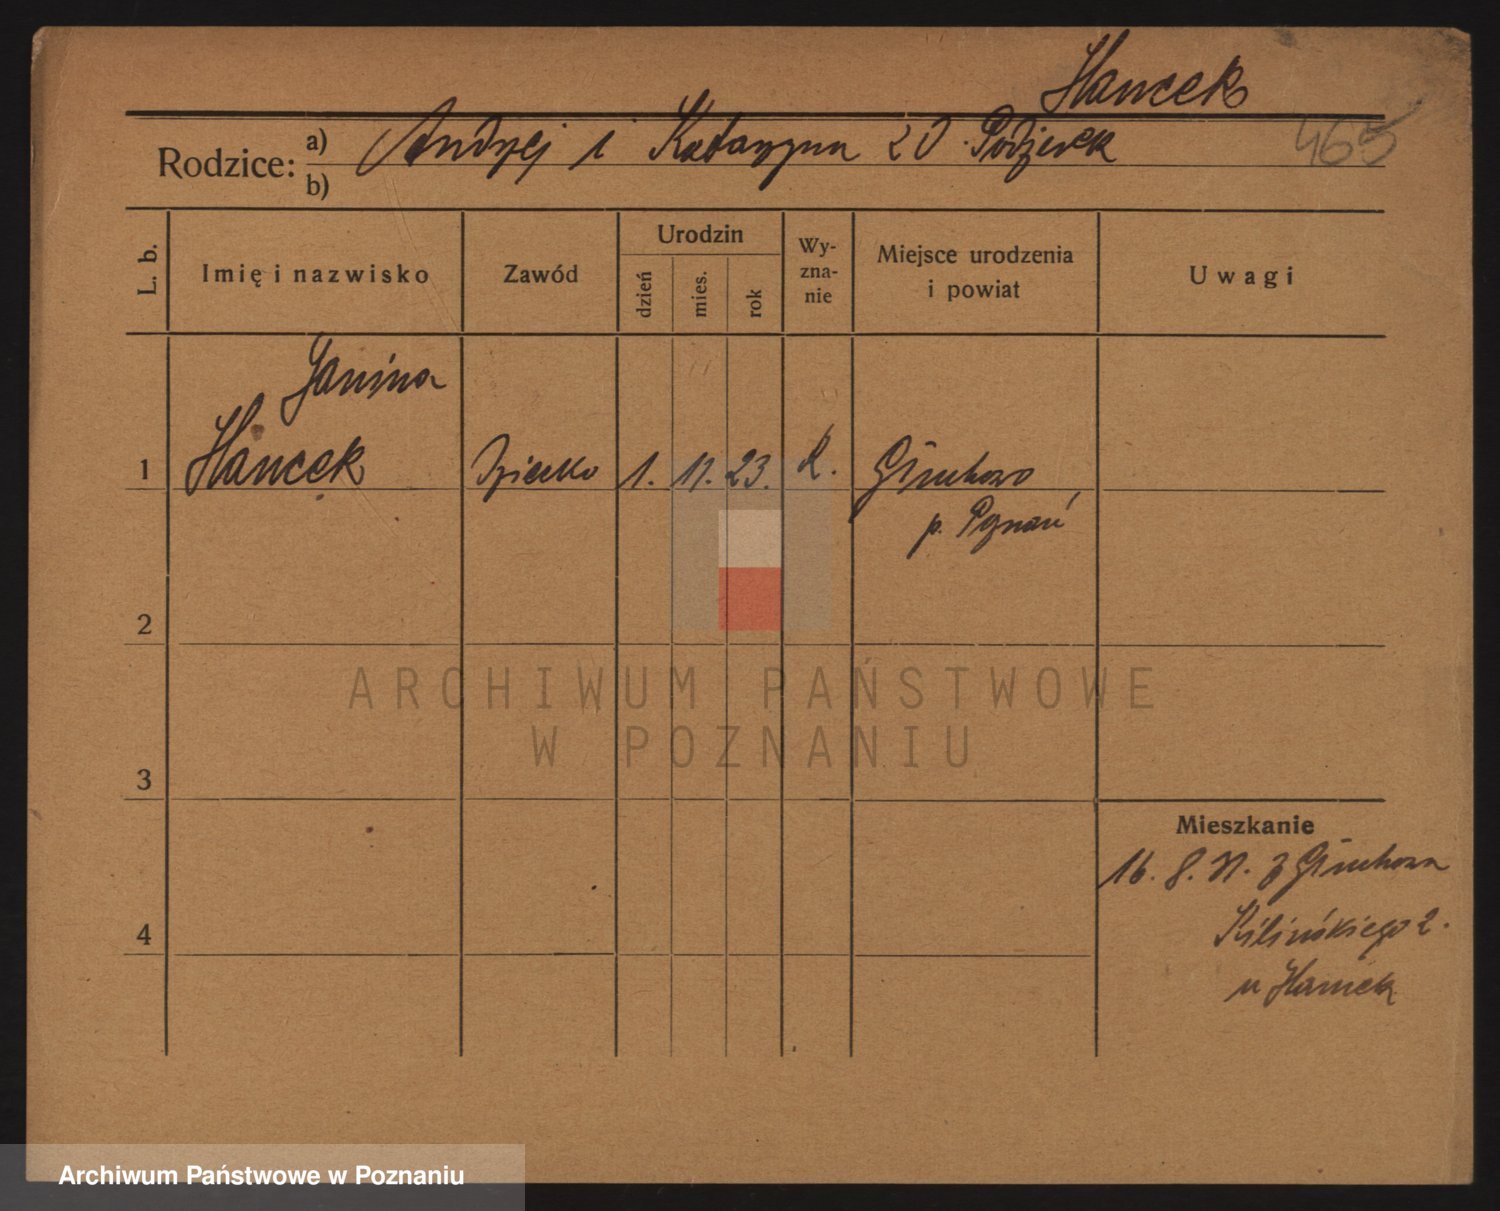 Hancek
465
Rodzice: a) Andrzej i Katarzyna z d.
b)
L. b.
Imię i nazwisko
Zawód
Urodzin
dzień
mies.
rok
Wy-
zna-
nie
Miejsce urodzenia
i powiat
Uwagi
Janina
1 Hancek Dziecko 1. 11. 23. K. Głuchowo
p. Poznań
2
3
4
Mieszkanie
16. 8. 31. z Głuchowa
Kilińskiego 2.
u Hancek
ARCHIWUM PAŃSTWOWE
W POZNANIU
Archiwum Państwowe w Poznaniu